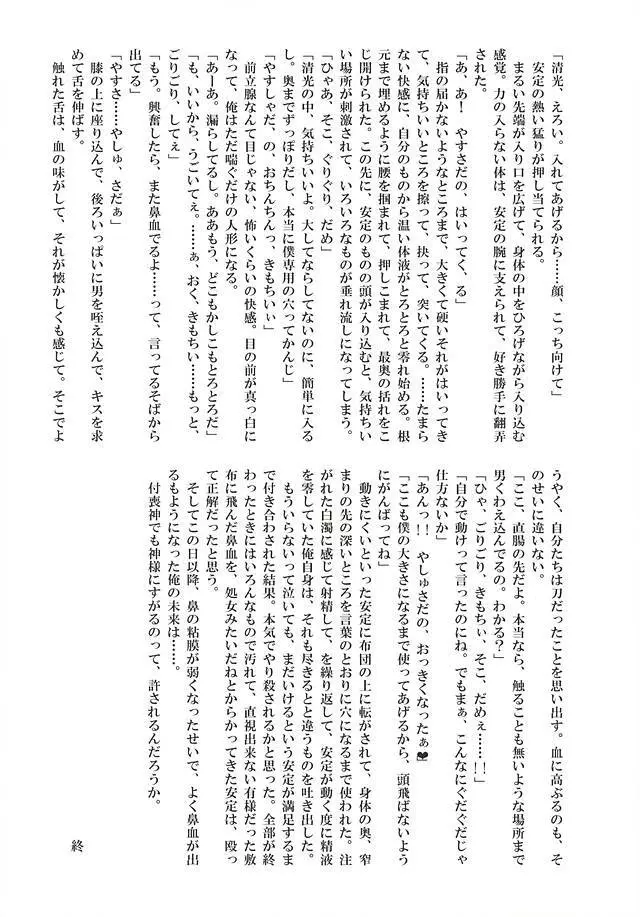 「清光、えろい。入れてあげるから……顔、こっち向けて」
安定の熱い猛りが押し当てられる。
まるい先端が入り口を広げて、身体の中をひろげながら入り込む
感覚。力の入らない体は、安定の腕に支えられて、好き勝手に翻弄
された。
「あ、あ！　やすさだの、はいってく、る」
指の届かないようなところまで、大きくて硬いそれがはいってき
て、気持ちいいところを擦って、抉って、突いてくる。……たまら
ない快感に、自分のものから温い体液がとろとろと零れ始める。根
元まで埋めるように腰を掴まれて、押しこまれて、最奥の括れをこ
じ開けられた。この先に、安定のものの頭が入り込むと、気持ちい
い場所が刺激されて、いろいろなものが垂れ流しになってしまう。
「ひゃあ、そこ、ぐりぐり、だめ」
「清光の中、気持ちいいよ。大してならしてないのに、簡単に入る
し。奥までずっぽりだし、本当に僕専用の穴ってかんじ」
「やすしゃだ、の、おちんちんっ、きもちいぃ」
前立腺なんて目じゃない、怖いくらいの快感。目の前が真っ白に
なって、俺はただ喘ぐだけの人形になる。
「あーあ。漏らしてるし。ああもう、どこもかしこもとろとろだ」
「も、いいから、うごいてぇ。……ぁ、おく、きもちい……もっと、
ごりごり、してぇ」
「もう。興奮したら、また鼻血でるよ……って、言ってるそばから
出てる」
「やすさ……やしゅ、さだぁ」
膝の上に座り込んで、後ろいっぱいに男を咥え込んで、キスを求
めて舌を伸ばす。
触れた舌は、血の味がして、それが懐かしくも感じて。そこでよ
うやく、自分たちは刀だったことを思い出す。血に高ぶるのも、そ
のせいに違いない。
「ここ、直腸の先だよ。本当なら、触ることも無いような場所まで
男くわえ込んでるの。わかる？」
「ひゃ、ごりごり、きもちぃ、そこ、だめぇ……！！」
「自分で動けって言ったのにね。でもまぁ、こんなにぐだぐだじゃ
仕方ないか」
「あんっ！！　やしゅさだの、おっきくなったぁ♥」
「ここも僕の大きさになるまで使ってあげるから、頭飛ばないよう
にがんばってね」
動きにくいといった安定に布団の上に転がされて、身体の奥、窄
まりの先の深いところを言葉のとおりに穴になるまで使われた。注
がれた白濁に感じて射精して、を繰り返して、安定が動く度に精液
を零していた俺自身は、それも尽きると違うものを吐き出した。
もういらないって泣いても、まだいけるという安定が満足するま
で付き合わされた結果。本気でやり殺されるかと思った。全部が終
わったときにはいろんなもので汚れて、直視出来ない有様だった敷
布に飛んだ鼻血を、処女みたいだねとからかってきた安定は、殴っ
て正解だったと思う。
そしてこの日以降、鼻の粘膜が弱くなったせいで、よく鼻血が出
るもようになった俺の未来は……。
付喪神でも神様にすがるのって、許されるんだろうか。
終